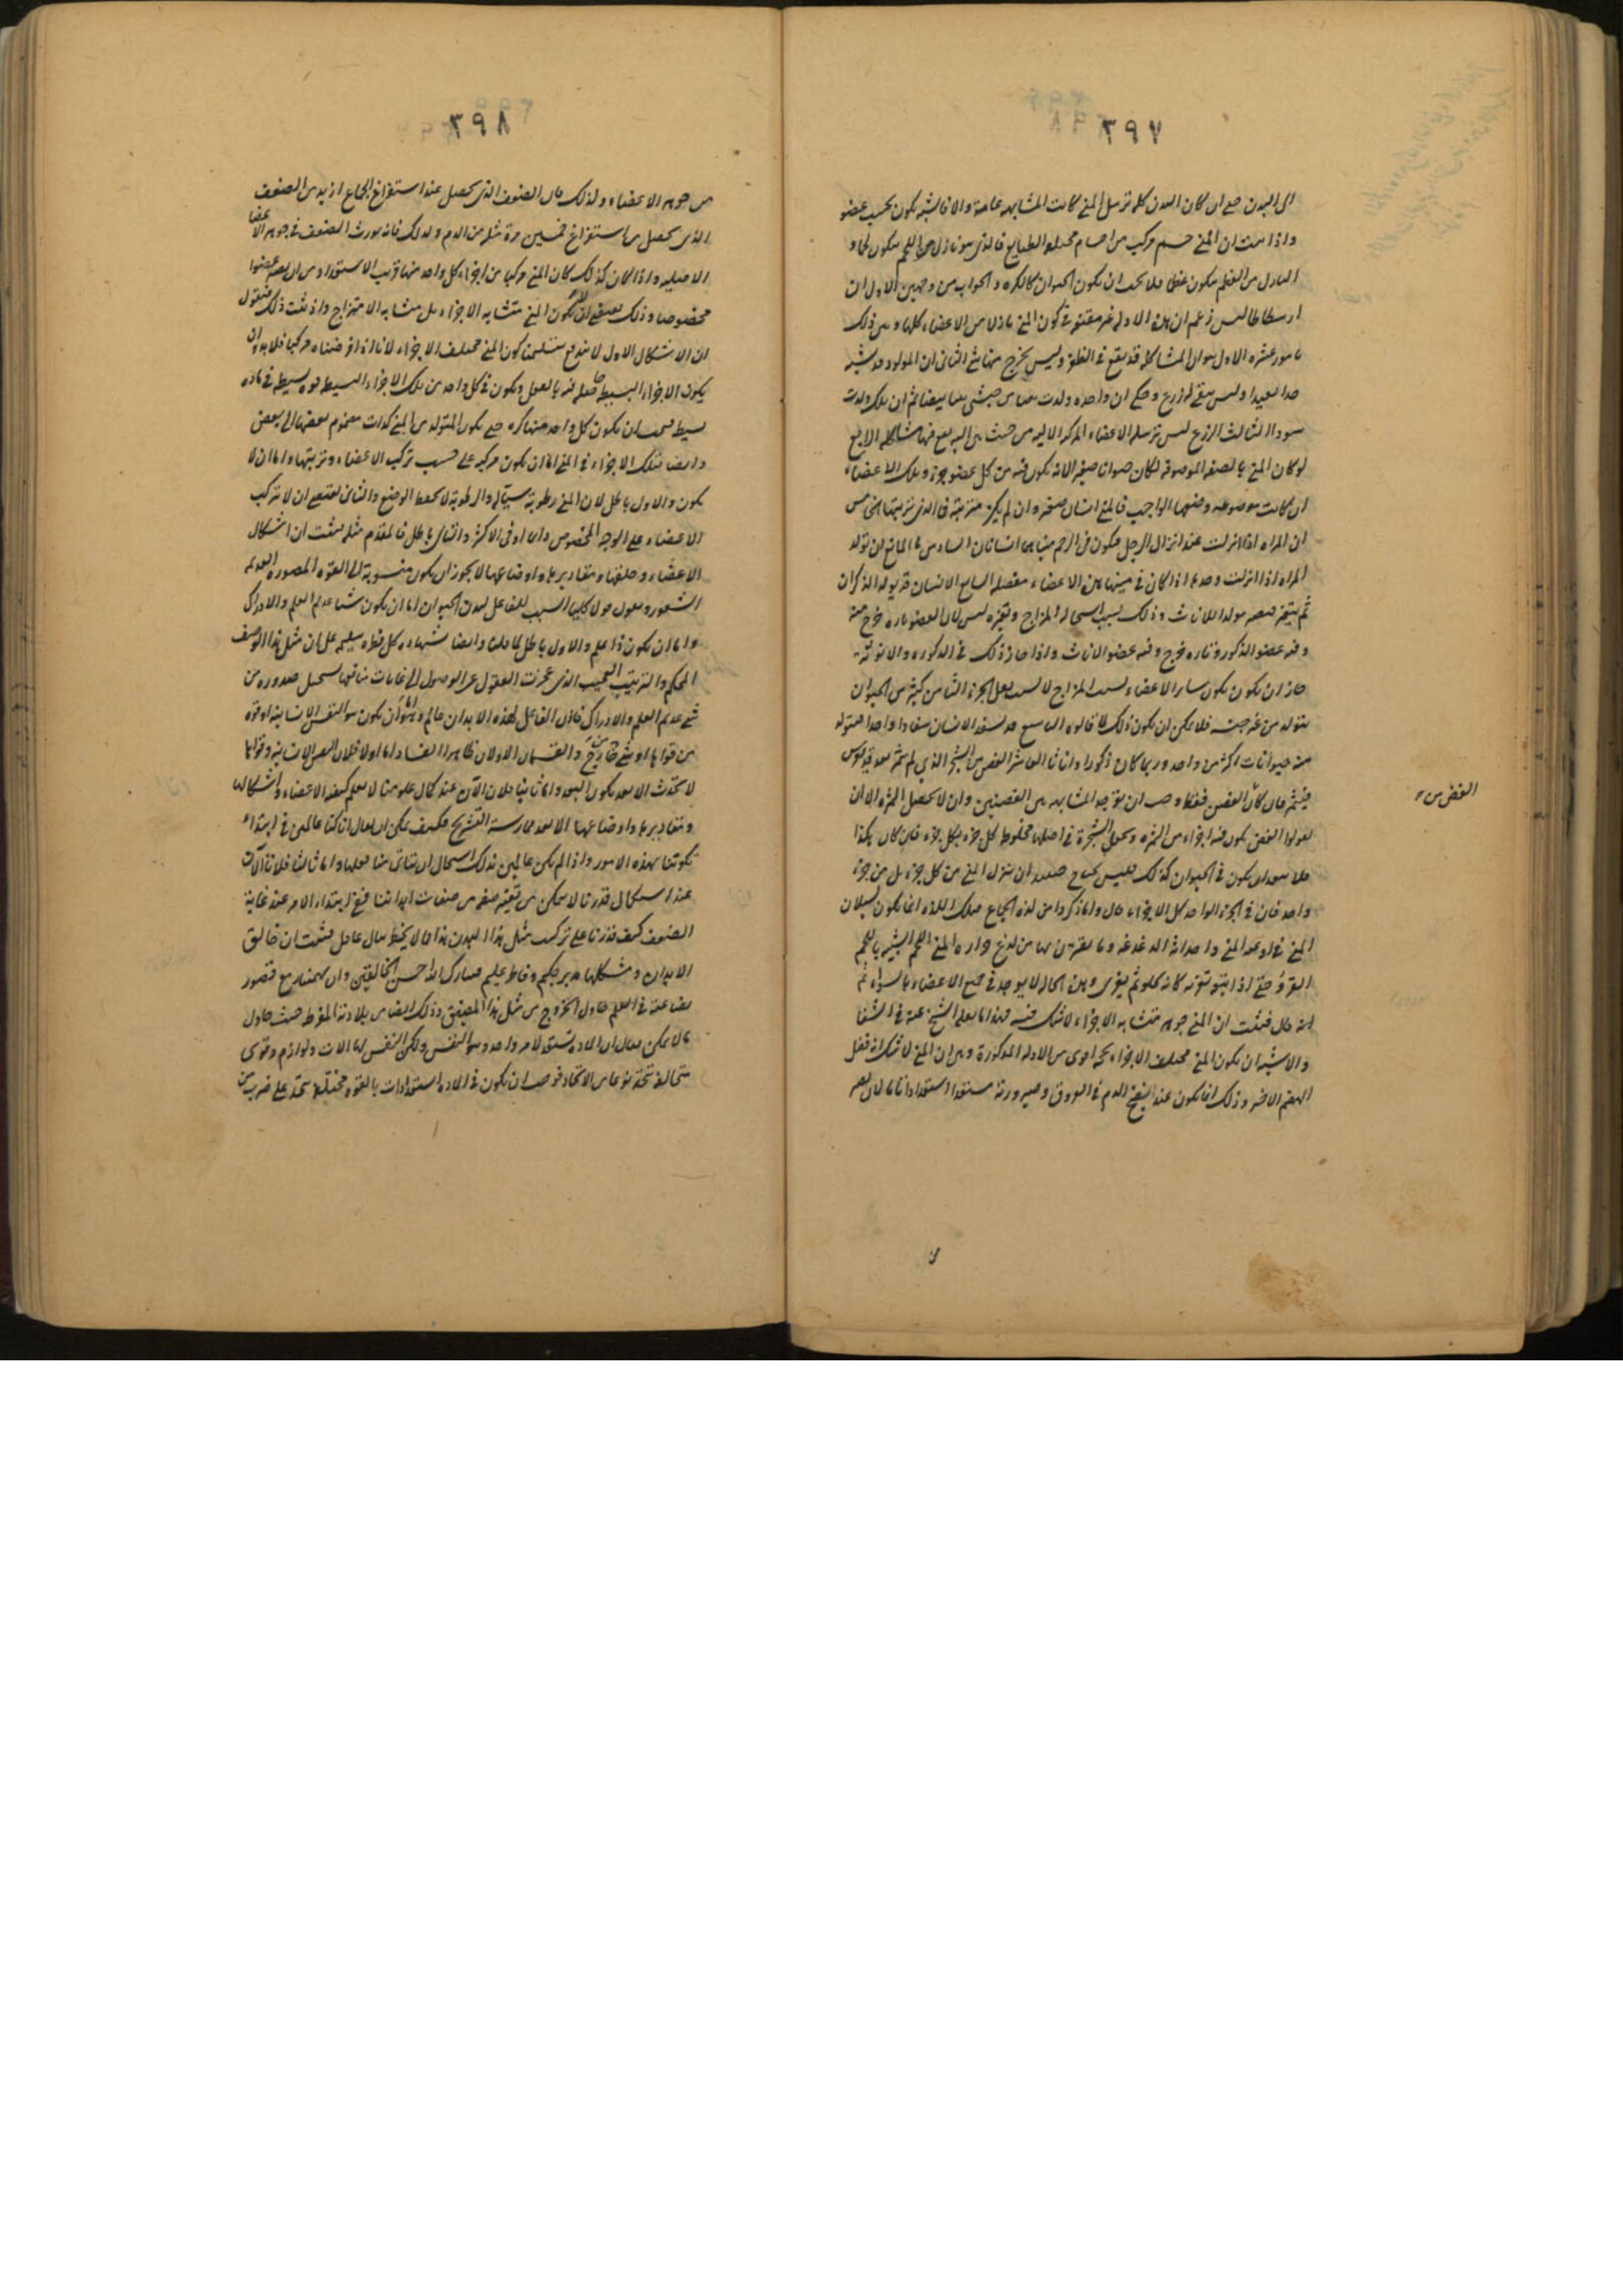 ٣٩٧
الى البدن حتى ان كان البدن كله ترسل المنى كانت المشابهة عامة والا فالشبه يكون بحسب عضو
واذا ثبت ان المنى جسم مركب من اجسام مختلفة الطبايع فالذى هو نازل من اللحم يتكون لحما و
النازل من العظم يتكون عظما فلا يجب ان يكون الحيوان كالكره و الجواب من وجهين الاول ان
ارسطاطاليس زعم ان هذه الادلة غير مقنعة فى كون المنى نازلا من الاعضاء كلها وبين ذلك
بامور عشره الاول هو ان المشاكلة قد يقع فى الظفر وليس يخرج منها شى الثانى ان المولود قد يشبه
جدا بعيدا وليس يبقى له زرع وحكى ان واحدة ولدت من حبشى بنتا بيضا ثم ان تلك ولدت
سوداء الثالث الزرع ليس ترسله الاعضاء المركبة الآلية من حيث هى آلية ويقع فيها مشاكلة الرابع
لو كان المنى بالصفة الموصوفة لكان حيوانا صغيرا لانه يكون فيه من كل عضو جزء وتلك الاعضاء
ان كانت موضوعة وضعها الواجب فالمنى انسان صغير وان لم يكن مترتبة فما الذى يرتبها الخامس
ان المراه اذا انزلت عند انزال الرجل فيكون فى الرحم منيان هما انسانان السادس ما المانع ان تولد
المراه اذا انزلت وحدها اذا كان فى منيها هذه الاعضاء مفصلة السابع الانسان قد يولد الذكران
ثم يتغير فيصير مولدا للاناث وذلك بسبب استحالة المزاج وتغيره ليس لان العضو تارة خرج منه
وفيه عضو الذكور وتاره خرج وفيه عضو الاناث واذا جاز ذلك فى الذكورة والانوثة
جاز ان يكون سائر الاعضاء بسبب المزاج لا بسبب نقل الجزء الثامن كثير من الحيوان
يتولد من غير جنسه فلا يمكن ان يكون ذلك لما قالوه التاسع قد يسفد الانسان سفادا واحدا فيتولد
منه حيوانات اكثر من واحد وربما كان ذكورا واناثا العاشر الغصن من الشجر الذى لم يثمر بعد قد يغرس
فيثمر فان كان الغصن فقط وجب ان يوجد المشابهة من الغصنين وان لا يحصل الثمره الا ان
يقولوا الغصن يكون فيه اجزاء من الثمره ويجعل الشجرة فى اصلها مخلوط كل جزء بكل جزء فان كان هكذا
فلا يبعد ان يكون فى الحيوان كذلك فليس يحتاج حينئذ ان ينزل المنى من كل جزء بل من جزء
واحد فان فى الجزء الواحد كل الاجزاء قال واما ذكروا من لذة الجماع فتلك اللذة انما يكون لسيلان
المنى فى اوعية المنى واحداثه الدغدغة وما يقترن بها من لذع حرارة المنى اللحم الشبيه باللحم
القروح حتى اذا ثبتوا قوته كانه يكلوه ثم يغرى وهذه الحال لا يوجد فى جميع الاعضاء بالسواء ثم
انه قال فثبت ان المنى جوهر متشابه الاجزاء لا شك فيه فهذا ما نقله الشيخ عنه فى الشفا
والاشبه ان يكون المنى مختلف الاجزاء بحجة اقوى من الادلة المذكورة وهى ان المنى لا شك انه فضل
الهضم الاخير وذلك انما يكون عند نضج الدم فى العروق وصيرورته مستعدا استعدادا تاما لان يصير
الغصن من
٣٩٨
من جوهر الاعضاء ولذلك كان الضعف الذى يحصل عند استفراغ الجماع ازيد من الضعف
الذى يحصل من استفراغ خمسين مرة مثله من الدم ولذلك فانه يورث الضعف فى جوهر الاعضا
الاصلية واذا كان كذلك كان المنى مركبا من اجزاء كل واحد منها قريب الاستعداد من ان يصير عضوا
مخصوصا وذلك يقتضى ان لا يكون المنى متشابه الاجزاء بل متشابه الامتزاج واذ ثبت ذلك فنقول
ان الاشكال الاول لا يندفع بتسليم كون المنى مختلف الاجزاء لانا اذا فرضناه مركبا فلا بد وان
يكون الاجزاء البسيطة حاصلة فيه بالفعل ويكون فى كل واحد من تلك الاجزاء البسيطة قوة بسيطة فى مادة
بسيطة فيجب ان يكون كل واحد منها كره حتى يكون المتولد من المنى كرات مضموم بعضها الى بعض
وايضا فتلك الاجزاء فى المنى اما ان يكون مركبة على حسب تركيب الاعضاء وترتيبها واما ان لا
يكون والاول باطل لان المنى رطوبة سيالة والرطوبة لا تحفظ الوضع والثانى يقتضى ان لا تركب
الاعضاء على الوجه المخصوص دائما او فى الاكثر والتالى باطل فالمقدم مثله فثبت ان اشكال
الاعضاء وخلقها ومقاديرها واوضاعها لا يجوز ان يكون منسوبة الى القوة المصورة العديمة
الشعور ونقول قولا كليا السبب الفاعل لبدن الحيوان اما ان يكون شيئا عديم العلم والادراك
واما ان يكون ذا علم والاول باطل لما قلنا وايضا شهادة كل فطرة سليمة على ان مثل هذا الوصف
المحكم والترتيب العجيب الذى عجزت العقول عن الوصول الى غايات منافعها يستحيل صدوره من
شى عديم العلم والادراك فاذن الفاعل لهذه الابدان عالم واما ان يكون هو النفس الانسانية او قوة
من قواها او شى خارج والقسمان الاولان ظاهرا الفساد اما اولا فلان النفس الانسانية وقواها
لا تحدث الا بعد تكون البدن واما ثانيا فلان الآن عند كمال علومنا لا نعلم كيفية الاعضاء واشكالها
ومقاديرها واوضاعها الا بعد ممارسة التشريح فكيف يمكن ان يقال انا كنا عالمين فى ابتداء
تكوننا بهذه الامور واذا لم نكن عالمين بذلك استحال ان يتاتى منا فعلها واما ثالثا فلانا الآن
عند استكمال قدرتنا لا نتمكن من تغيير صفة من صفات ابداننا ففى ابتداء الامر عند غاية
الضعف كيف قدرنا على تركيب مثل هذا البدن هذا مما لا يخطر ببال عاقل فثبت ان خالق
الابدان ومشكلها مدبر حكيم وفاطر عليم فتبارك الله احسن الخالقين وان بهمنيار مع قصور
بضاعته فى العلم حاول الخروج من مثل هذا المضيق وذلك لقياس بلادته المفرط حيث حاول
ما لا يمكن فقال ان المادة تستعد لامر واحد وهو النفس ولكن النفس لها آلات ولوازم وقوى
متخالفة تتحد نوعا من الاتحاد فوجب ان يكون فى المادة استعدادات بالقوة مختلفة تتحد على ضرب من